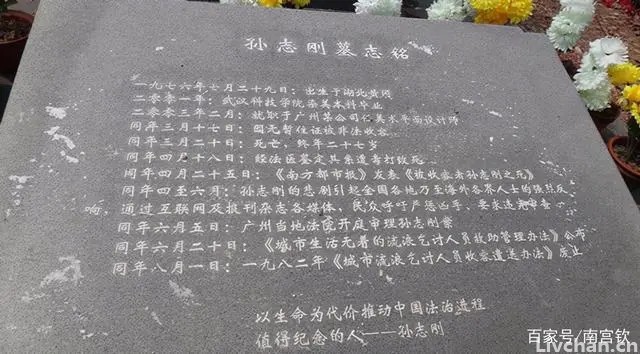 孙志刚墓志铭
一九七六年七月二十九日：出生于湖北黄冈
二〇〇一年：武汉科技学院染美本科毕业
二〇〇三年二月：就职于广州某公司任美术平面设计师
同年三月十七日：因无暂住证被非法收容
同年三月二十日：死亡，终年二十七岁
同年四月十八日：经法医鉴定其系遭毒打致死
同年四月二十五日：《南方都市报》发表《被收容者孙志刚之死》
同年四至六月：孙志刚的悲剧引起全国各地乃至海外各界人士的强烈反
响，通过互联网及报刊杂志各媒体，民众呼吁严惩凶手，要求违宪审查
同年六月五日：广州当地法院开庭审理孙志刚案
同年六月二十日：《城市生活无着的流浪乞讨人员救助管理办法》公布
同年八月一日：一九八二年《城市流浪乞讨人员收容遣送办法》废止
以生命为代价推动中国法治进程
值得纪念的人——孙志刚
百家号/南宫钦
Livchan.cn